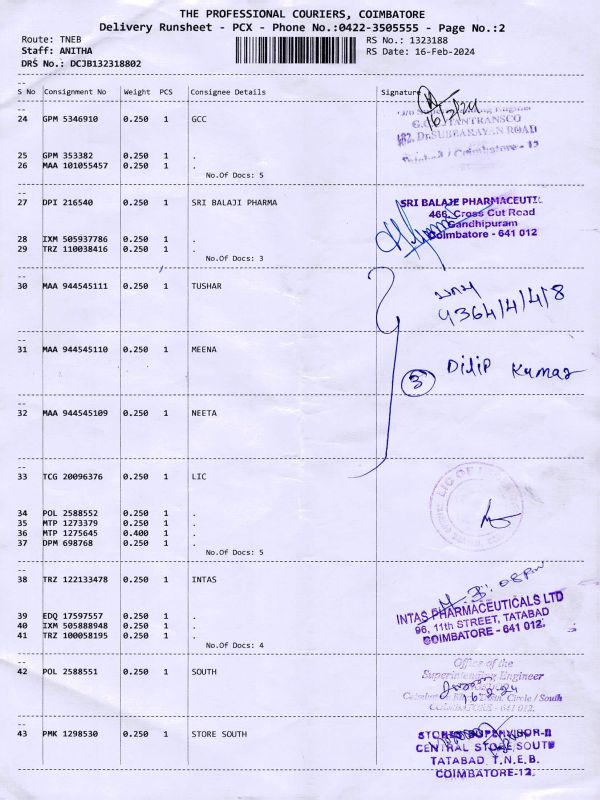 THE PROFESSIONAL COURIERS, COIMBATORE
Delivery Runsheet - PCX - Phone No.:0422-3505555 - Page No.:2
Route: TNEB
RS No.: 1323188
Staff: ANITHA
RS Date: 16-Feb-2024
DRS No.: DCJB132318802
S No Consignment No Weight PCS Consignee Details Signature
24 GPM 5346910 0.250 1 GCC
16/2/24
TANTRANSCO
182, Dr.SUBBARAYAN ROAD
Coimbatore - 12
25 GPM 353382 0.250 1 .
26 MAA 101055457 0.250 1 .
No.Of Docs: 5
27 DPI 216540 0.250 1 SRI BALAJI PHARMA
SRI BALAJE PHARMACEUTIC
466, Cross Cut Road
Gandhipuram
Coimbatore - 641 012
28 IXM 505937786 0.250 1 .
29 TRZ 110038416 0.250 1 .
No.Of Docs: 3
30 MAA 944545111 0.250 1 TUSHAR
31 MAA 944545110 0.250 1 MEENA
3 Dilip Kumar
32 MAA 944545109 0.250 1 NEETA
33 TCG 20096376 0.250 1 LIC
LIC OF
34 POL 2588552 0.250 1 .
35 MTP 1273379 0.250 1 .
36 MTP 1275645 0.400 1 .
37 DPM 698768 0.250 1 .
No.Of Docs: 5
38 TRZ 122133478 0.250 1 INTAS
INTAS PHARMACEUTICALS LTD
96, 11th STREET, TATABAD
COIMBATORE - 641 012.
39 EDQ 17597557 0.250 1 .
40 IXM 505888948 0.250 1 .
41 TRZ 100058195 0.250 1 .
No.Of Docs: 4
42 POL 2588551 0.250 1 SOUTH
Office of the
Superintending Engineer
16.2.24
Circle / South
COIMBATORE - 641 012.
43 PMK 1298530 0.250 1 STORE SOUTH
STORES SUPERVISOR-II
CENTRAL STORE/SOUTH
TATABAD T.N.E.B.
COIMBATORE-12.